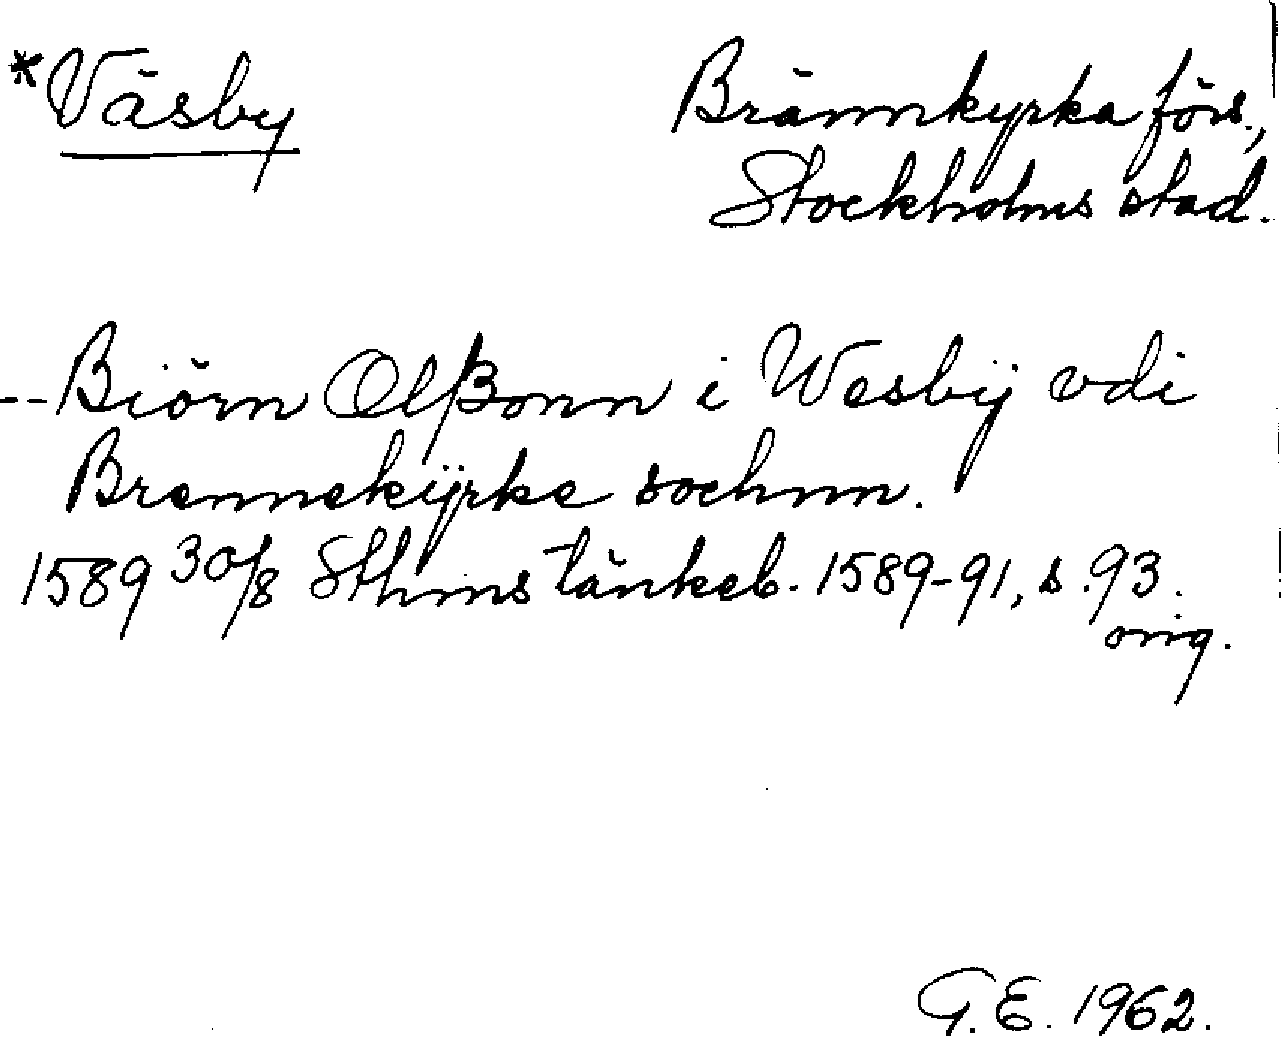 *Väsby
Brännkyrka förs.,
Stockholms stad.
-- Biörn Olßonn i Wesbÿ vdi
Brennekÿrke sochnn.
1589 30/8 Sthms tänkeb. 1589-91, s. 93.
orig.
G. E. 1962.